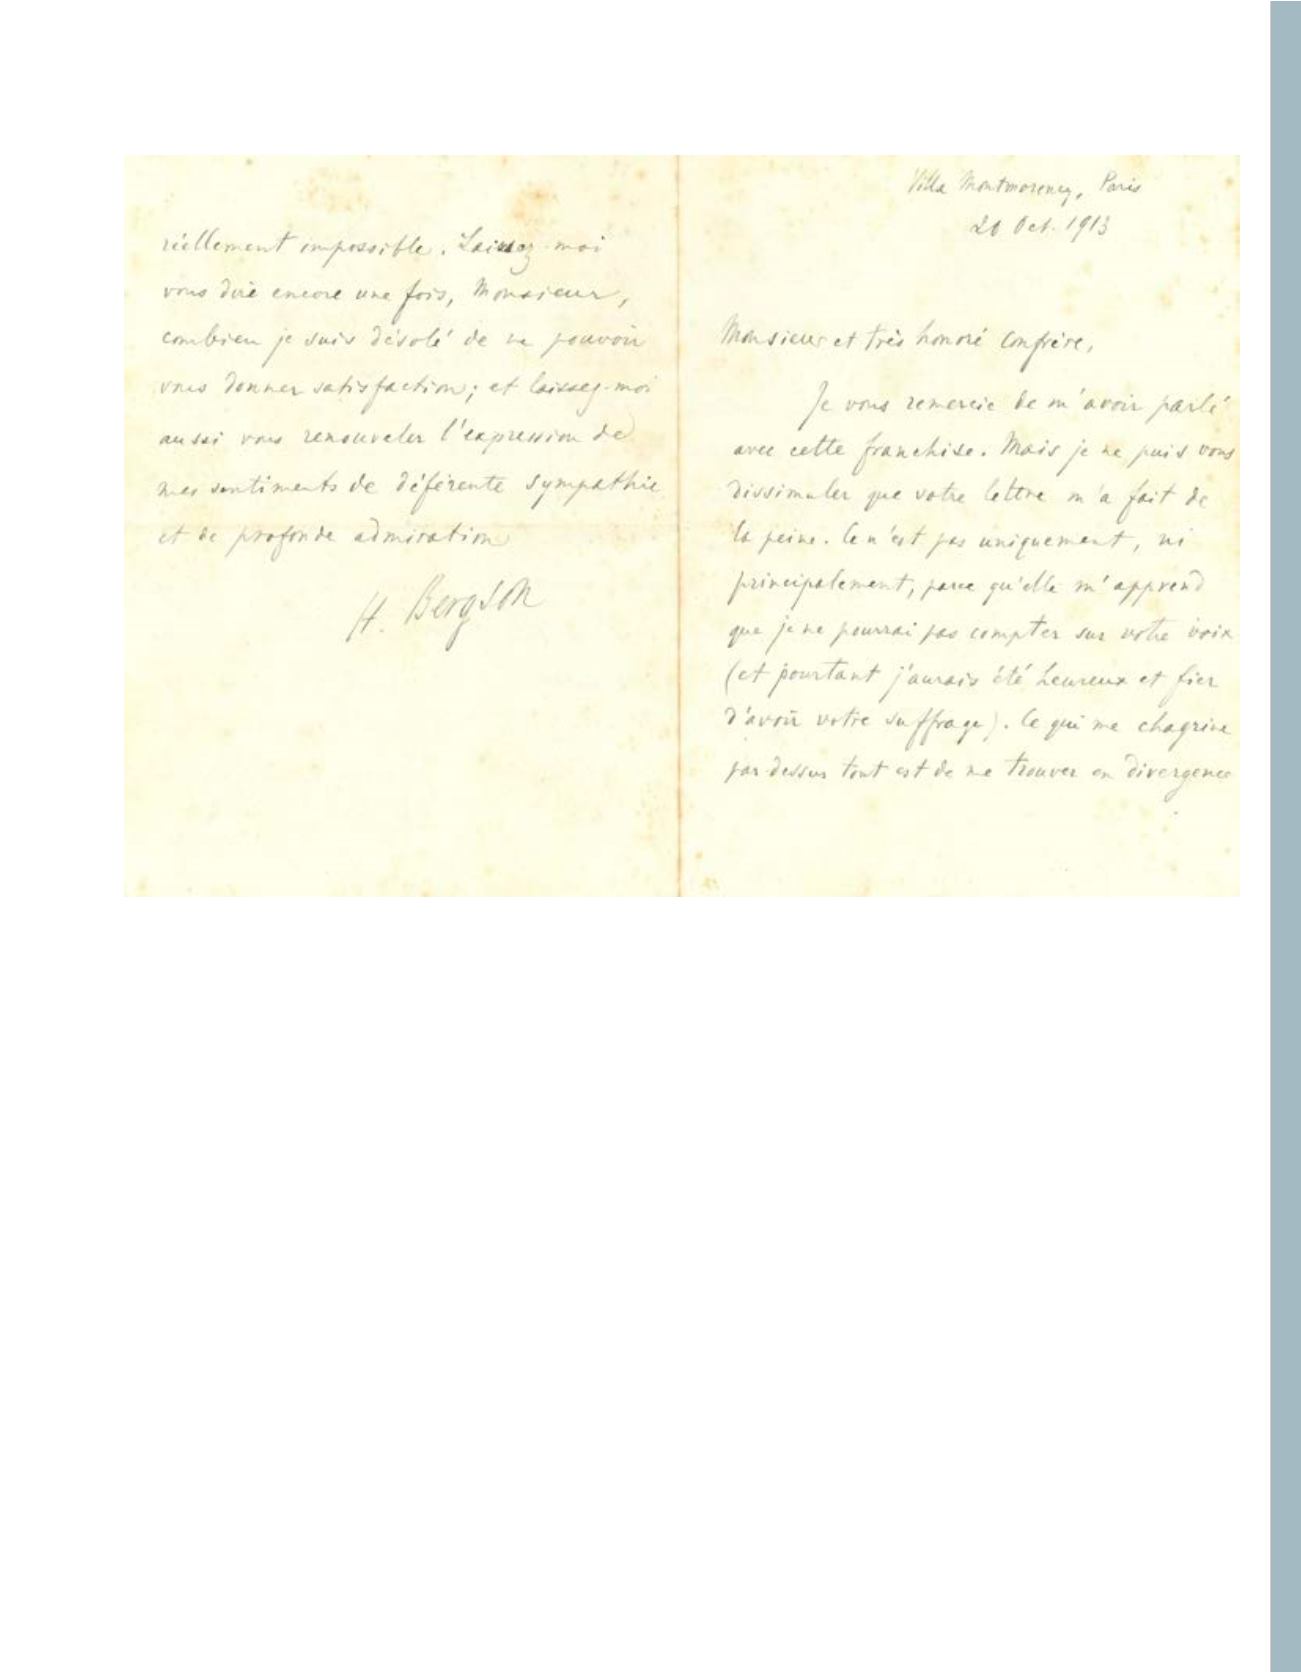 Villa Montmorency, Paris
20 Oct. 1913
Monsieur et très honoré Confrère,
Je vous remercie de m'avoir parlé
avec cette franchise. Mais je ne puis vous
dissimuler que votre lettre m'a fait de
la peine. Ce n'est pas uniquement, ni
principalement, parce qu'elle m'apprend
que je ne pourrai pas compter sur votre voix
(et pourtant j'aurais été heureux et fier
d'avoir votre suffrage). Ce qui me chagrine
par-dessus tout est de me trouver en divergence
réellement impossible. Laissez-moi
vous dire encore une fois, Monsieur,
combien je suis désolé de ne pouvoir
vous donner satisfaction ; et laissez-moi
aussi vous renouveler l'expression de
mes sentiments de déférente sympathie
et de profonde admiration
H. Bergson